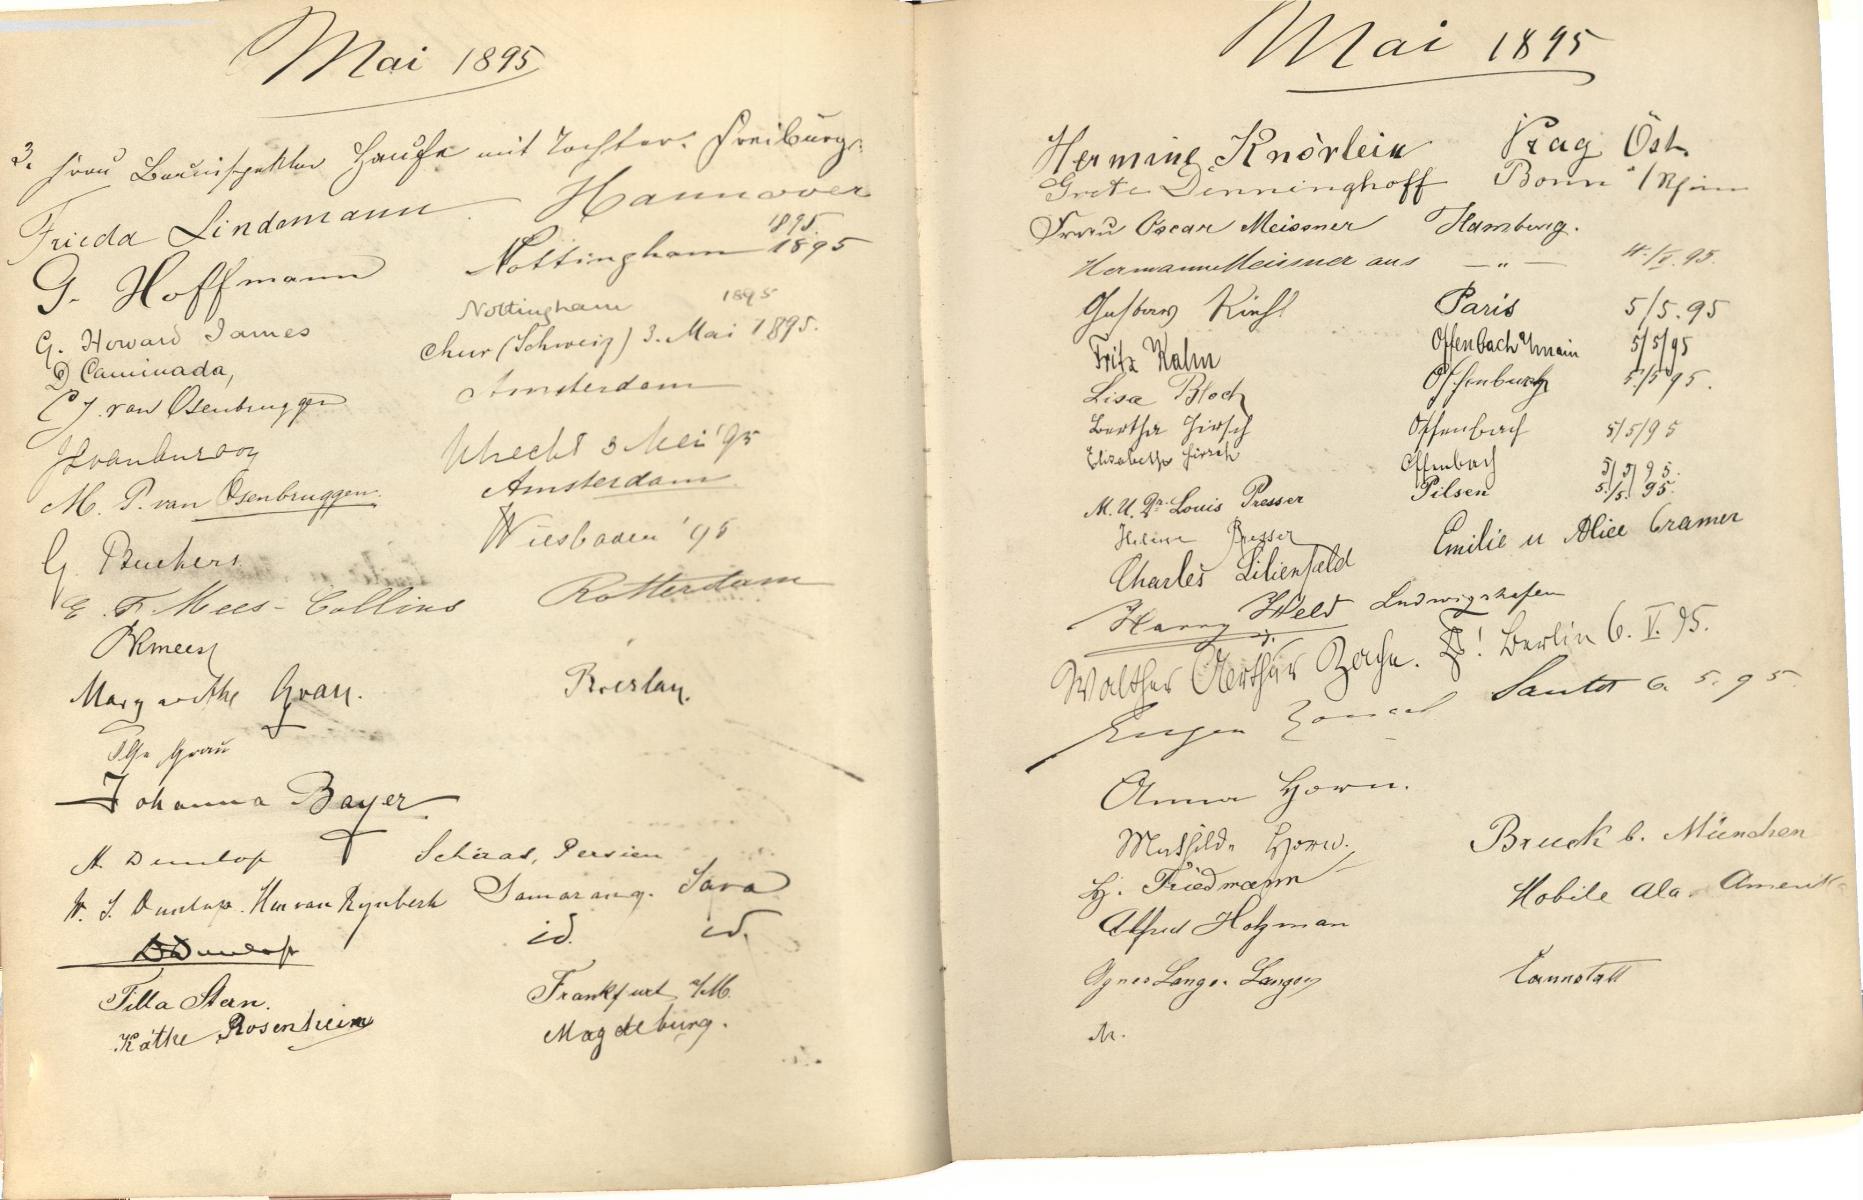 Mai 1895
3. Frau Bauinspektor Haufe mit Tochter. Freiburg
Frieda Lindemann Hannover
1895.
G. Hoffmann Nottingham 1895
G. Howard James Nottingham 1895
D Caminada, Chur (Schweiz) 3. Mai 1895.
C J. van Osenbruggen Amsterdam
Utrecht 3 Mei '95
M. P. van Osenbruggen. Amsterdam
G. Wiesbaden '95
E. F. Mees-Collins Rotterdam
Mees
Margarethe Grau. Breslau.
Grau
Johanna Bayer
A. Dunlop Schiras, Persien
W. S. Dunlop. van Rynberk Samarang. Java
Dunlop id. id.
Tilla Stern. Frankfurt a/M.
Käthe Rosenheim Magdeburg.
Mai 1895
Hermine Knörlein Prag Öst.
Grete Denninghoff Bonn / Rhein
Frau Oscar Meissner Hamburg.
Hermann Meissner aus — " — 4./V. 95.
Gustav Paris 5/5. 95
Fritz Kahn Offenbach a/main 5/5/95
Lisa Bloch Offenbach 5./5 95.
Bertha Hirsch Offenbach 5/5/95
Elisabetha Hirsch Offenbach 5/5/95.
M. U. Dr. Louis Presser Pilsen 5./5. 95.
Helene Presser
Charles Lilienfeld Emilie u Alice Cramer
Harry Held Ludwigshafen
Walther Arthur Berlin 6. V. 95.
Eugen 6. 5. 95
Anna Horn.
Mathilde Horn. Bruck b. München
H. Friedmann
Alfred Holzman Mobile Ala. Amerik
Agnes Lange-Langen Cannstatt
M.